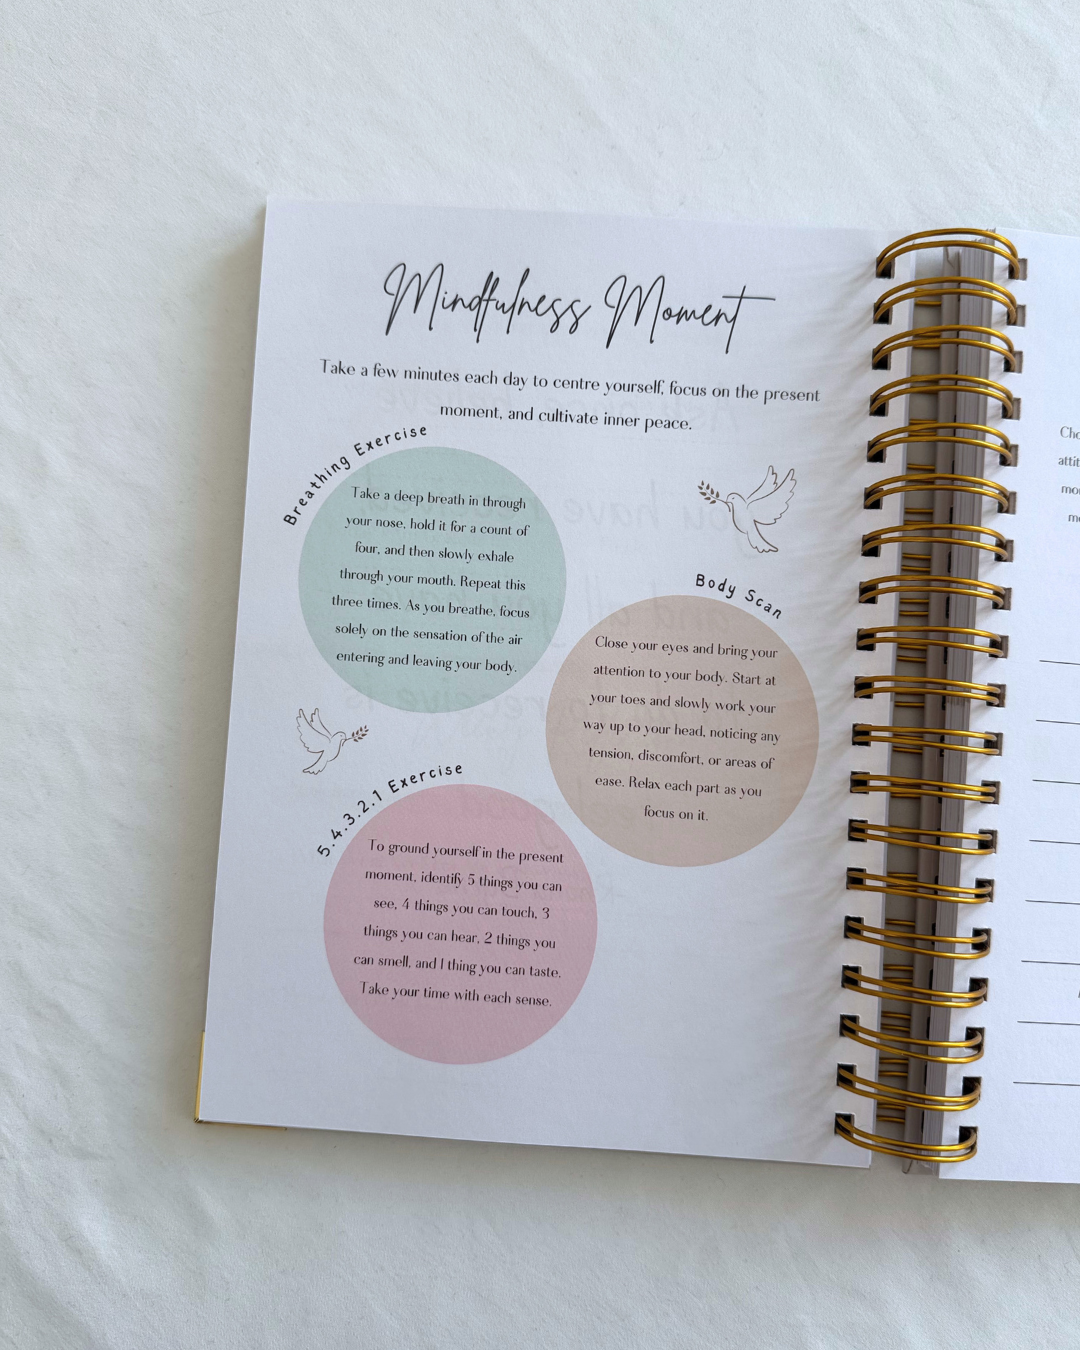 Mindfulness Moment
Take a few minutes each day to centre yourself, focus on the present
moment, and cultivate inner peace.
Breathing Exercise
Take a deep breath in through
your nose, hold it for a count of
four, and then slowly exhale
through your mouth. Repeat this
three times. As you breathe, focus
solely on the sensation of the air
entering and leaving your body.
Body Scan
Close your eyes and bring your
attention to your body. Start at
your toes and slowly work your
way up to your head, noticing any
tension, discomfort, or areas of
ease. Relax each part as you
focus on it.
5.4.3.2.1 Exercise
To ground yourself in the present
moment, identify 5 things you can
see, 4 things you can touch, 3
things you can hear, 2 things you
can smell, and 1 thing you can taste.
Take your time with each sense.